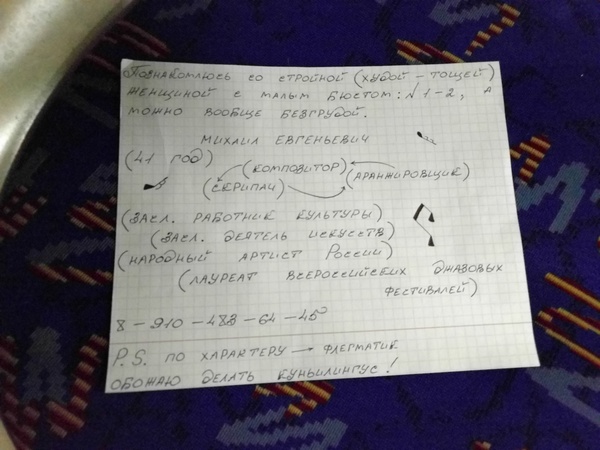 Познакомлюсь со стройной (худой - тощей)
женщиной с малым бюстом: №1-2, а
можно вообще безгрудой.
Михаил Евгеньевич
(41 год)
(композитор)
(аранжировщик)
(скрипач)
(засл. работник культуры)
(засл. деятель искусств)
(народный артист России)
(лауреат всероссийских джазовых
фестивалей)
8-910-483-64-45
P.S. по характеру → флегматик
обожаю делать куньилингус!